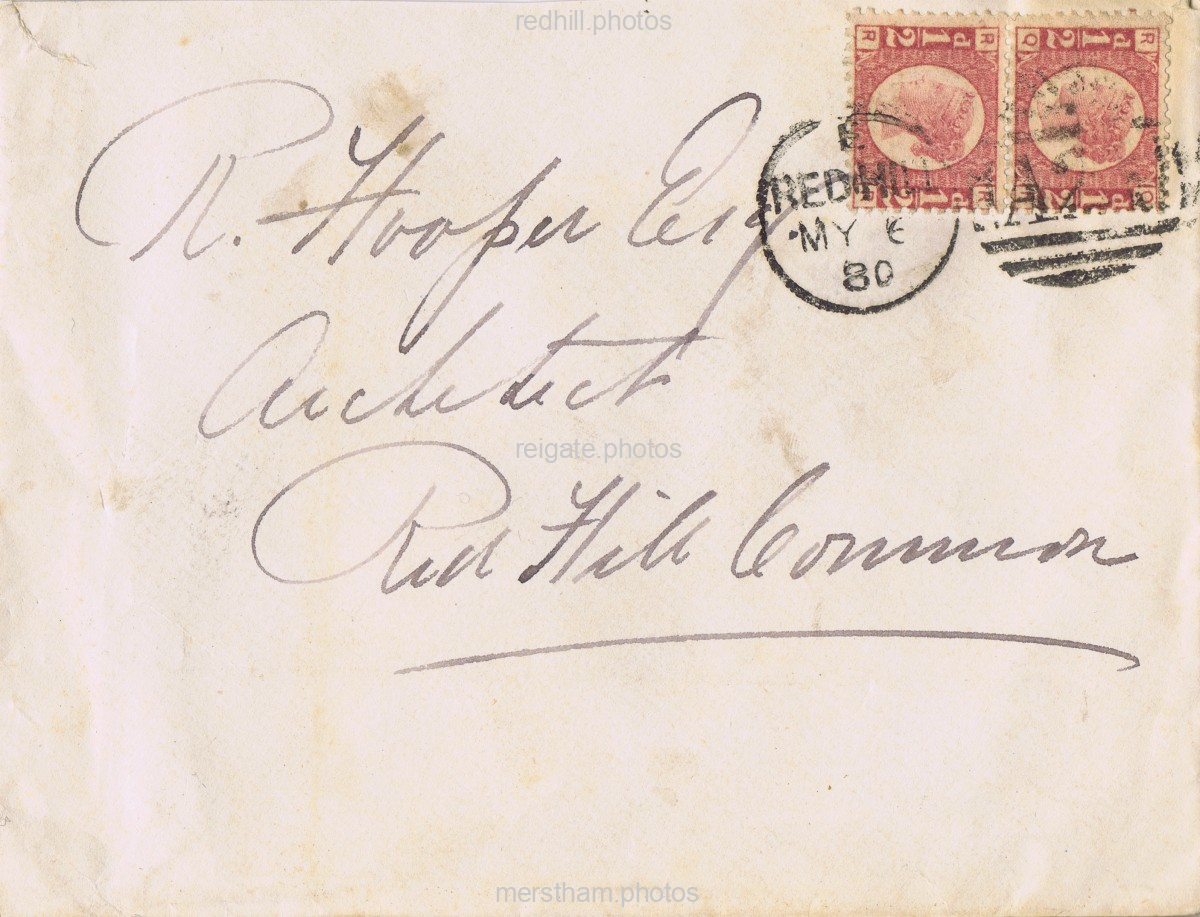 redhill.photos
R. Hooper Esq
Architect
Red Hill Common
E
REDHILL
MY 6
80
reigate.photos
merstham.photos